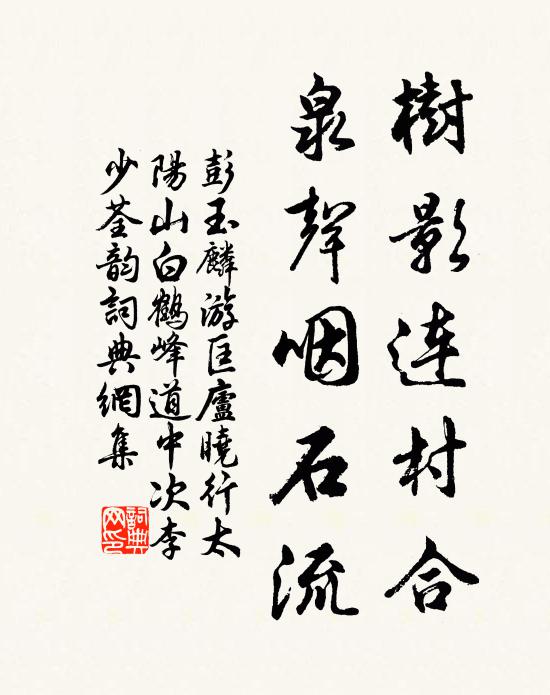 樹影連村合
泉聲咽石流
彭玉麟游匡廬曉行太
陽山白鶴峰道中次李
少荃韵詞典網集
詞典网印